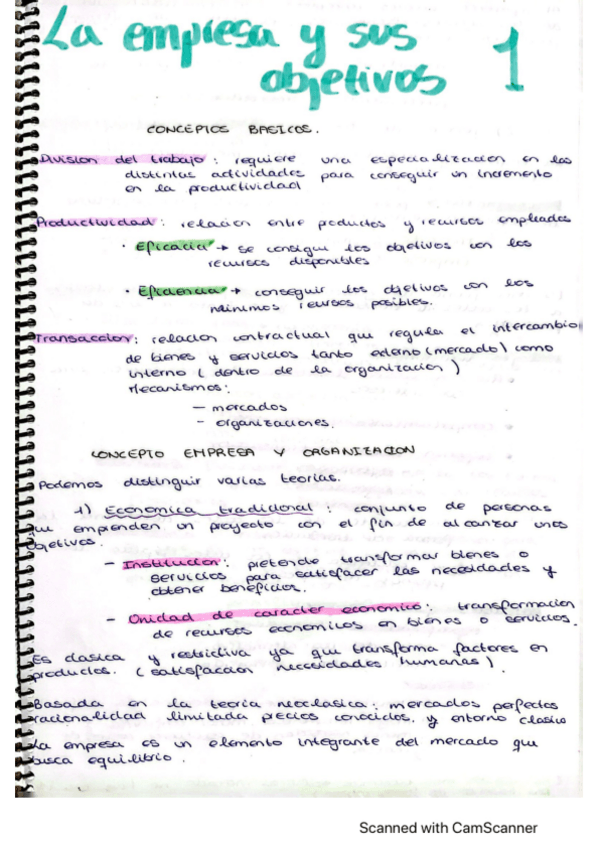 La empresa y sus 1
objetivos
CONCEPTOS BASICOS.
Division del trabajo : requiere una especializacion en las
distintas actividades para conseguir un incremento
en la productividad
Productividad : relacion entre productos y recursos empleados
· Eficacia → se consigue los objetivos con los
recursos disponibles
· Eficiencia → conseguir los objetivos con los
mínimos recursos posibles.
Transaccion : relacion contractual que regula el intercambio
de bienes y servicios tanto externo (mercado) como
interno ( dentro de la organizacion )
Mecanismos:
— mercados
- organizaciones.
CONCEPTO EMPRESA Y ORGANIZACION
Podemos distinguir varias teorias.
1) Economica tradicional : conjunto de personas
que emprenden un proyecto con el fin de alcanzar unos
objetivos.
- Institucion : pretende transformar bienes o
servicios para satisfacer las necesidades y
obtener beneficios.
- Unidad de caracter economico : transformacion
de recursos economicos en bienes o servicios.
Es clasica y restrictiva ya que transforma factores en
productos. ( satisfaccion necesidades humanas ).
Basada en la teoria neoclasica : mercados perfectos
racionalidad limitada precios conocidos. y entorno clasico
La empresa es un elemento integrante del mercado que
busca equilibrio.
Scanned with CamScanner